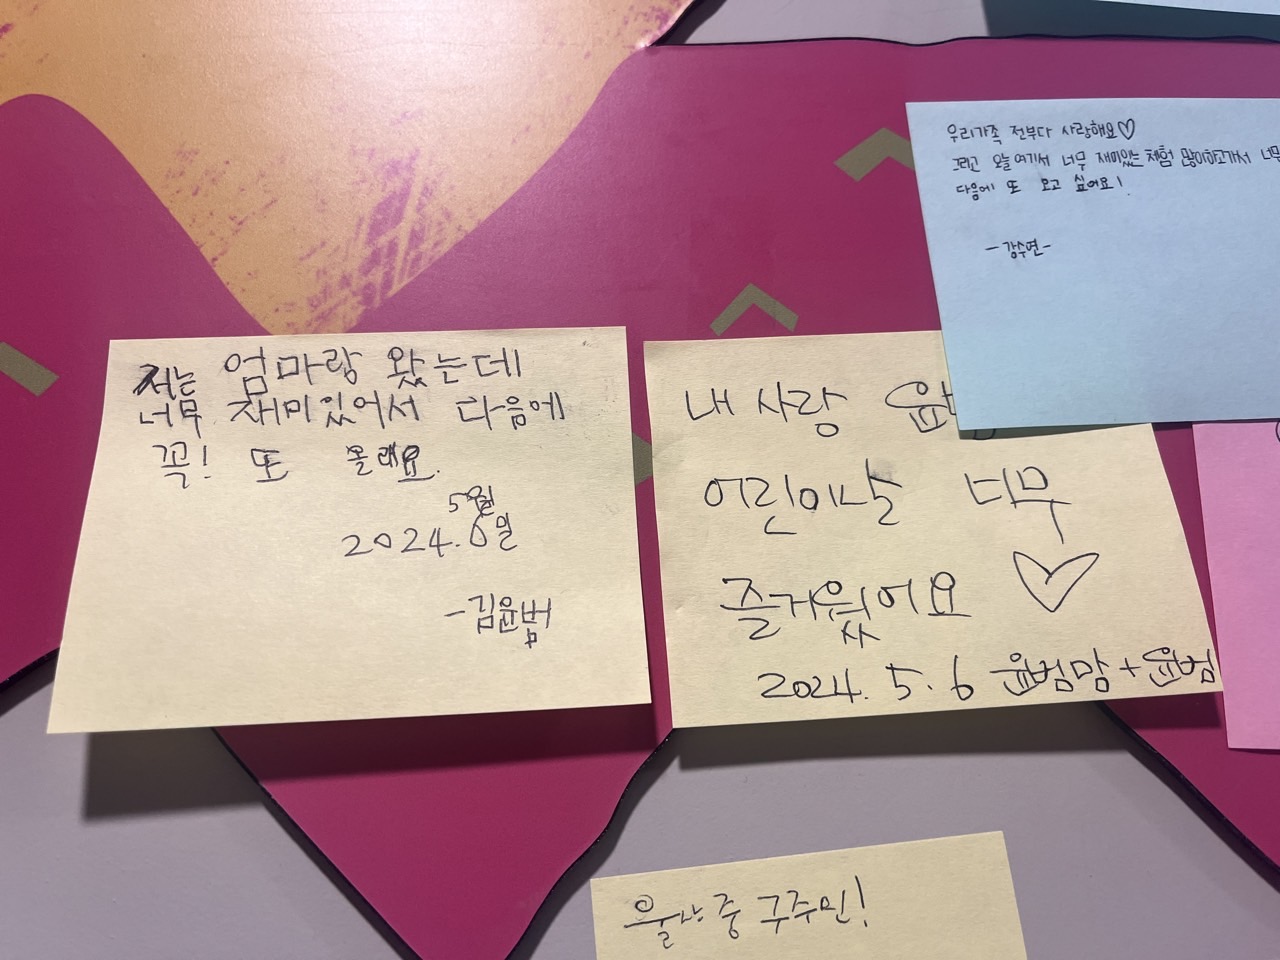 저는 엄마랑 왔는데
너무 재미있어서 다음에
꼭! 또 올래요.
5월
2024. 6일
-김윤범
내 사랑
어린이날 너무
즐거웠어요 ♡
2024. 5. 6 윤범맘 + 윤범
우리가족 전부다 사랑해요♡
그리고 오늘 여기서 너무 재미있는 체험 많이하고가서 너무
다음에 또 오고 싶어요!
-강수연-
울산 중구주민!